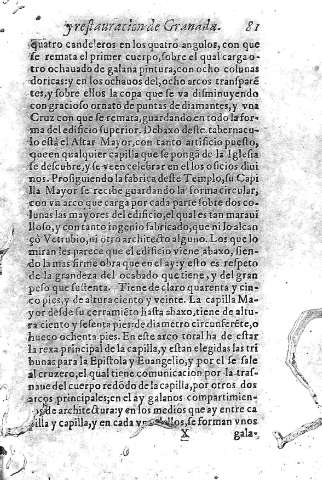 y restauracion de Granada. 81
quatro candeleros en los quatro angulos, con que
se remata el primer cuerpo, sobre el qual carga o-
tro ochauado de galana pintura, con ocho colunas
doricas: y en los ochauos del, ocho arcos transparē
tes, y sobre ellos la copa que se va disminuyendo
con gracioso ornato de puntas de diamantes, y vna
Cruz con que se remata, guardando en todo la for-
ma del edificio superior. Debaxo deste tabernacu-
lo está el Altar Mayor, con tanto artificio puesto,
que en qualquier capilla que se ponga de la Iglesia
se descubre, y se veen celebrar en el los oficios diui
nos. Prosiguiendo la fabrica deste Templo, su Capi
lla Mayor se recibe guardando la forma circular,
con vn arco que carga por cada parte sobre dos co-
lunas las mayores del edificio, el qual es tan maraui
lloso, y con tanto ingenio fabricado, que ni lo alcan
çò Vetrubio, ni otro architecto alguno. Los que lo
miran les parece que el edificio viene abaxo, sien-
do la mas firme obra que en el ay: y esto es respeto
de la grandeza del ocabado que tiene, y del gran
peso que sustenta. Tiene de claro quarenta y cin-
co pies, y de altura ciento y veinte. La capilla Ma-
yor desde su cerramiēto hasta abaxo, tiene de altu-
ra ciento y sesenta pies: de diametro circunferēte, o
hueco ochenta pies. En este arco total ha de estar
la rexa principal de la capilla, y estan elegidas las tri
bunas para la Epistola y Euangelio, y por el se sale
al cruzero, el qual tiene comunicacion por la tras-
naue del cuerpo redōdo de la capilla, por otros dos
arcos principales; en el ay galanos compartimien-
de architectura: y en los medios que ay entre ca
pilla y capilla, y en cada vno dellos, se forman vnos
X gala-